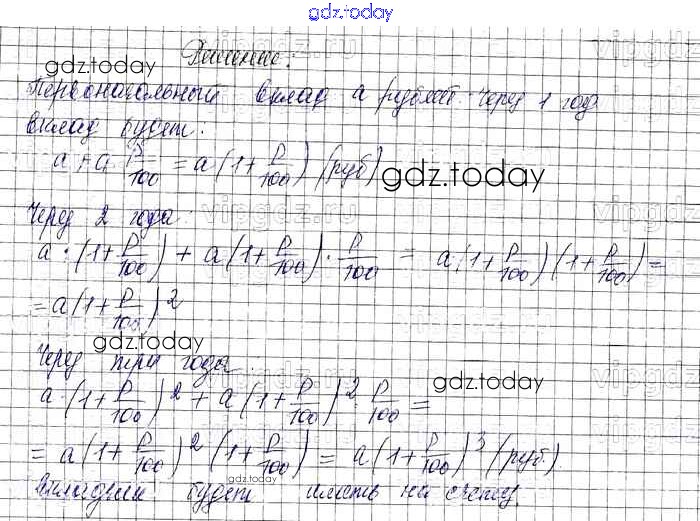 gdz.today
Решение:
gdz.today
Первоначальный вклад a рублей. Через 1 год
вклад будет:
a + a · p/100 = a(1 + p/100) (руб)
gdz.today
Через 2 года
vipgdz.ru
a · (1 + p/100) + a(1 + p/100) · p/100 = a(1 + p/100)(1 + p/100) =
= a(1 + p/100)²
gdz.today
Через три года
gdz.today
a · (1 + p/100)² + a(1 + p/100)² · p/100 =
= a(1 + p/100)² (1 + p/100) = a(1 + p/100)³ (руб).
gdz.today
вкладчик будет иметь на счету